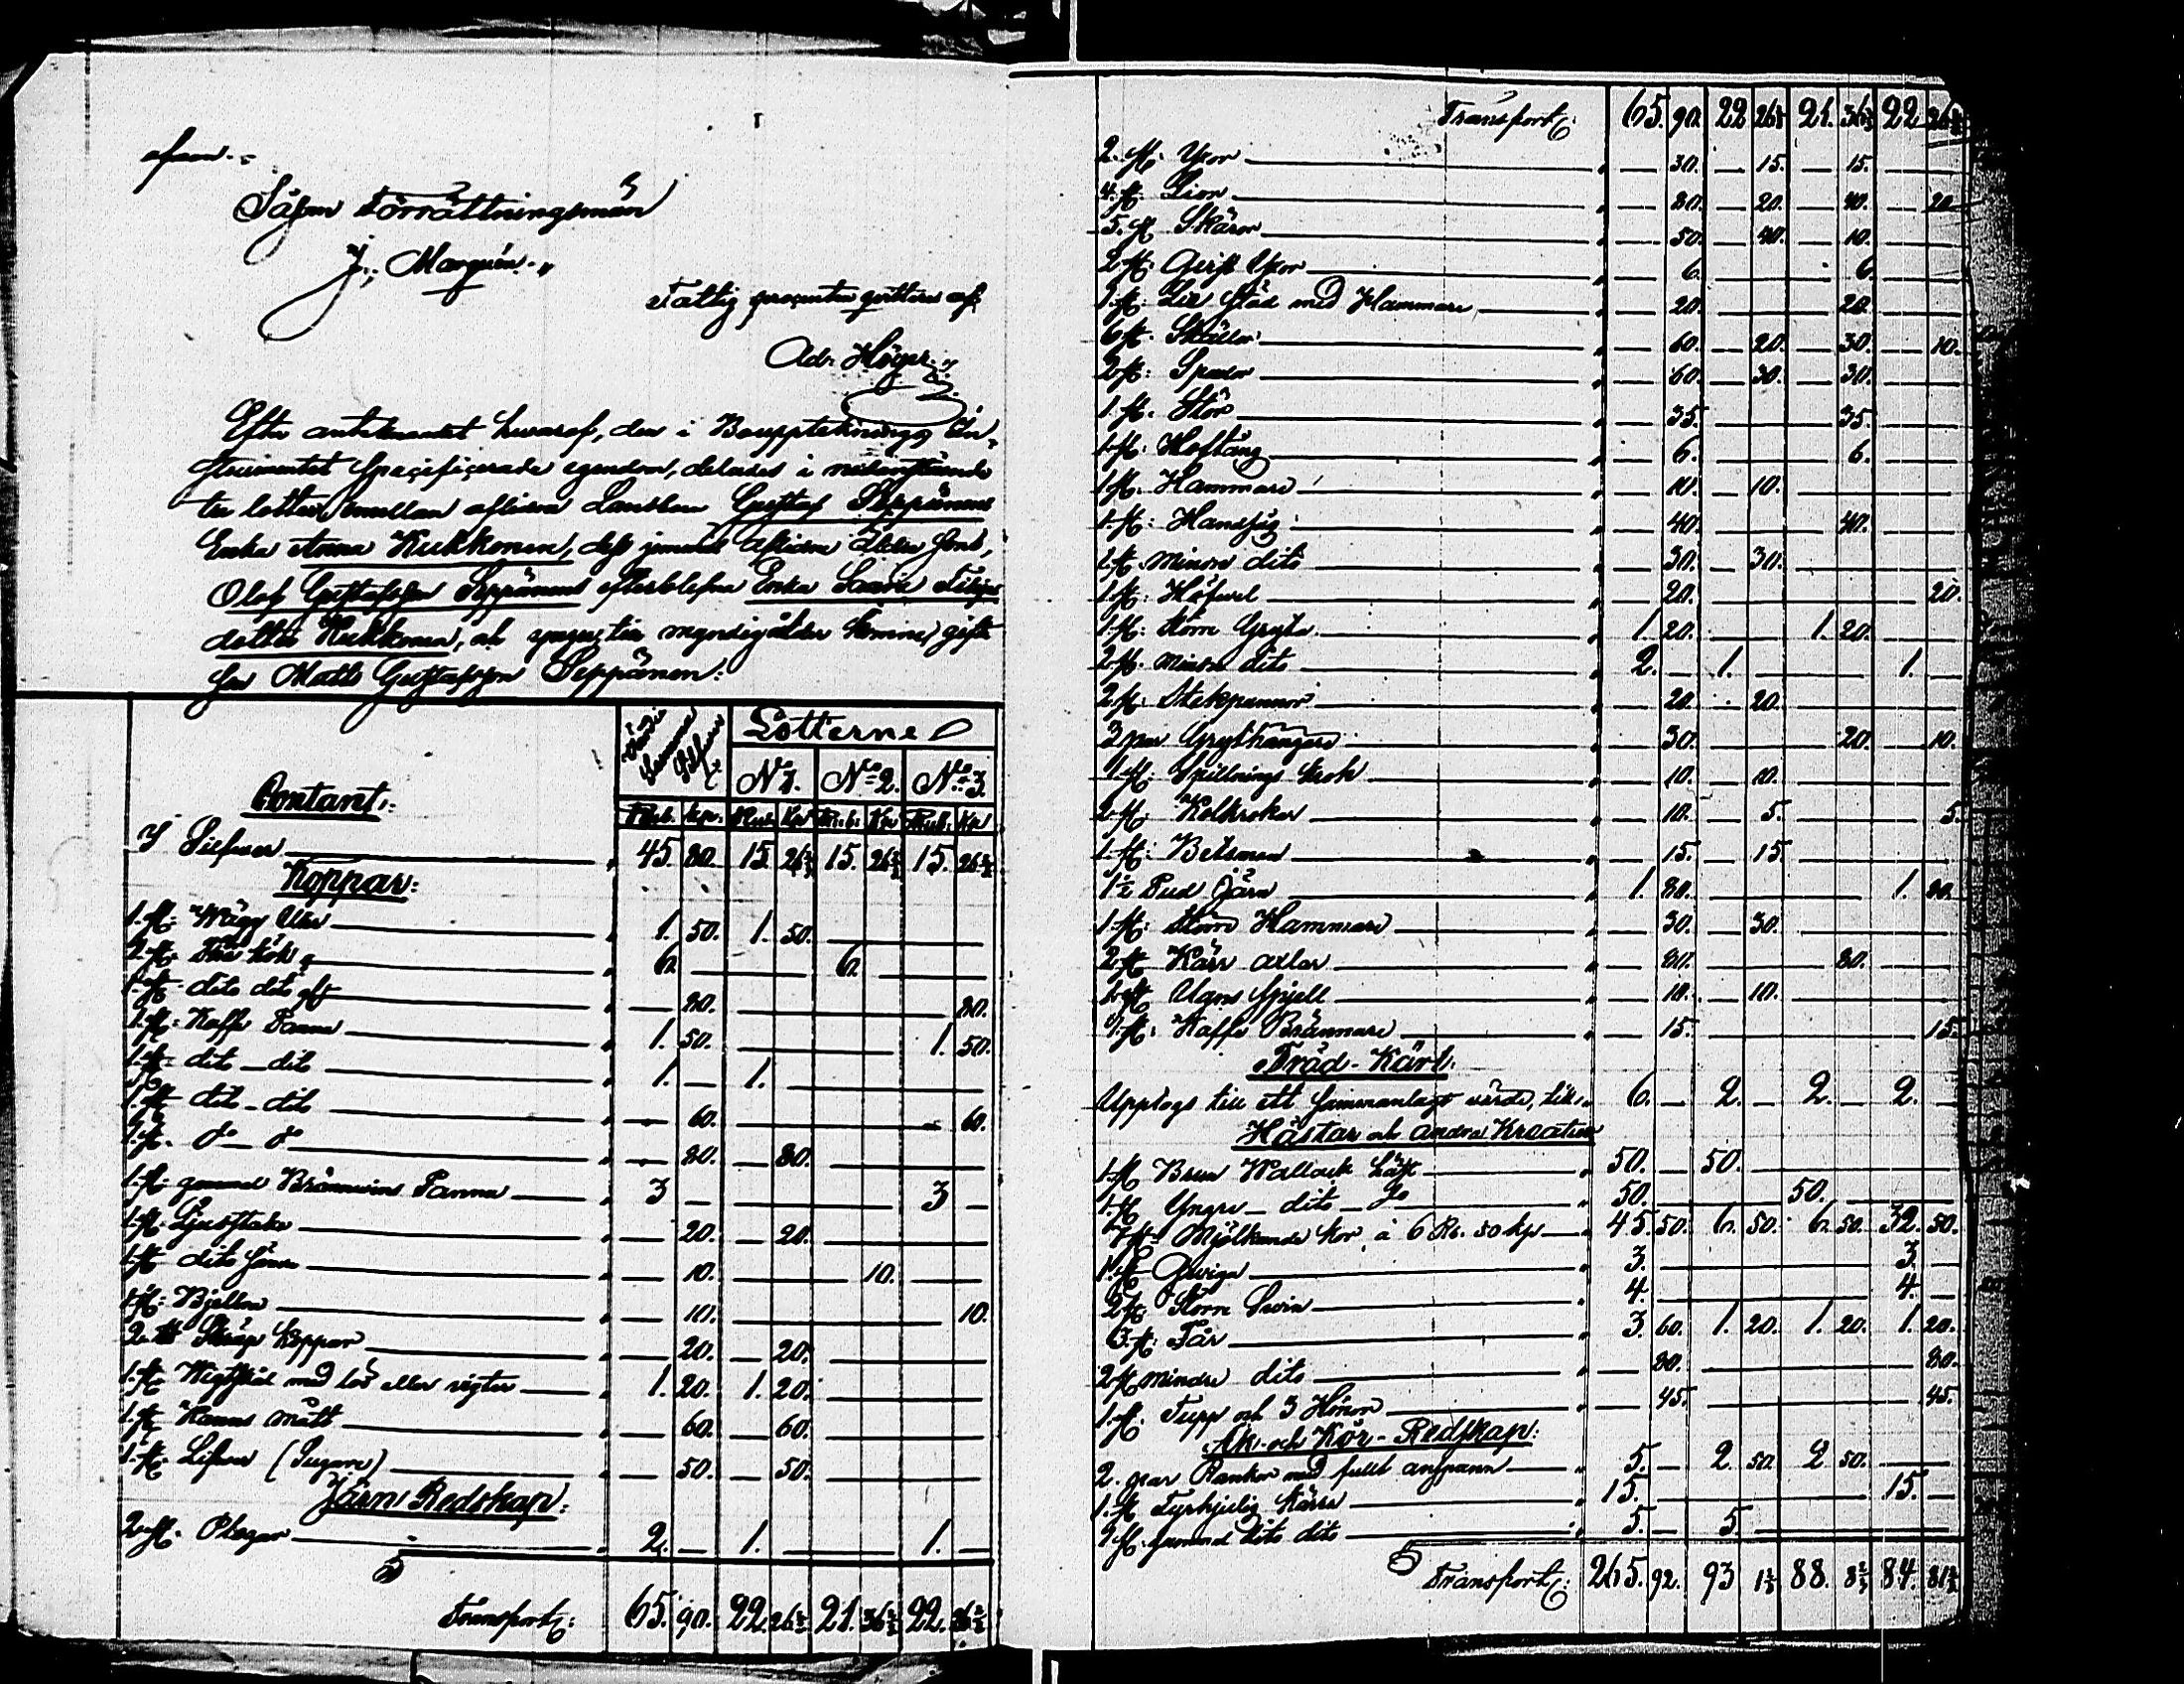 afven
Såsom Förrättningsman
J. Marquén
Fattig procenten qvitteras af
Ad. Höger
Efter antecknandet hwaraf, den i Bouppteknings In-
strumentet specificerade egendom, delades i nedanstående
tre lotter, emellan aflidne Landbon Gustaf Seppänens
Enka Anna Kukkonen, dess jemväl aflidne äldre sons,
Olof Gustafsson Seppänens efterblefna Enka
dotter Kukkonen, och yngre, till myndig ålder komne, gifte
son Matts Gustafsson Seppänen.
Lotterne
Silfver
Contant: No 1. No 2. No 3.
Rub. Kp. Rub. Kp Rub. Kp Rub. Kp
I Silfver 45. 80. 15. 26 2/3 15. 26 2/3 15. 26 2/3
Koppar:
1. st. Wägg 1. 50. 1. 50.
2. st. 6. 6.
1. st. dito dito 80. 80.
1. st. Kaffe Panna 1. 50. 1. 50.
1. st. dito dito 1. 1.
1. st. dito dito 60. 60.
1. st. do do 80. 80.
1. st. gammal Brännvins Panna 3 3
1. st. Ljusstake 20. 20.
1. st. dito 10. 10.
1. st. Bjellra 10. 10.
2. st. koppar 20. 20.
1. st. Wigtskål med eller vigter 1. 20. 1. 20.
1. st. Kanns mått 60. 60.
1. st. 50. 50.
Järn Redskap:
2. st. Plogar 2. 1. 1.
Transport: 65. 90. 22. 26 2/3 21. 36 2/3 22. 26 2/3
Transport: 65. 90. 22 26 2/3 21. 36 2/3 22 26 2/3
2. st. Yxor 30. 15. 15.
4. st. Liar 80. 20. 40. 20
5. st. Skäror 50. 40. 10.
2. st. Yxor 6. 6.
1. st. Lie städ med Hammare 20. 20.
6. st. 60. 20. 30. 10.
2. st. Spador 60. 30. 30.
1. st. Stör 35. 35.
1. st. Hoftång 6. 6.
1. st. Hammare 10. 10.
1. st. Handsåg 40. 40.
1. st. mindre dito 30. 30.
1. st. Höfvel 20. 20.
1. st. större Gryta 1. 20. 1. 20.
2. st. mindre dito 2. 1. 1.
2. st. Stekpannor 20. 20.
3 par Grythängare 30. 20. 10.
1. st. krok 10. 10.
2. st. Kolkrokar 10. 5. 5.
1. st. Betsman 15. 15.
1 1/2 Pud Järn 1. 80. 1. 80.
1. st. större Hammare 30. 30.
2. st. Kärr axlar 80. 80.
1. st. Ugns Spjell 10. 10.
1. st. Kaffe Brännare 15. 15.
Träd-Kärl:
Upptogs till ett sammanlagt värde, till 6. 2. 2. 2.
Hästar och andra Kreatur
1. st. Brun Wallack häst 50. 50.
1. st. Yngre dito do 50. 50.
7 st. Mjölkande kor à 6 Rb. 50 kp 45. 50. 6. 50. 6. 50. 32. 50.
1. st. Qwiga 3. 3.
2. st. Större Swin 4. 4.
6. st. Får 3. 60. 1. 20. 1. 20. 1. 20.
2. st. mindre dito 80. 80.
1. st. Tupp och 3 Hönor 45. 45.
Åk- och Kör-Redskap:
2. par Rankor med fullt anspann 5. 2. 50. 2 50.
1. st. Fyrhjulig Kärra 15. 15.
1. st. gammal dito dito 5. 5.
Transport: 265. 92. 93 1 2/3 88. 8 2/3 84. 81 2/3